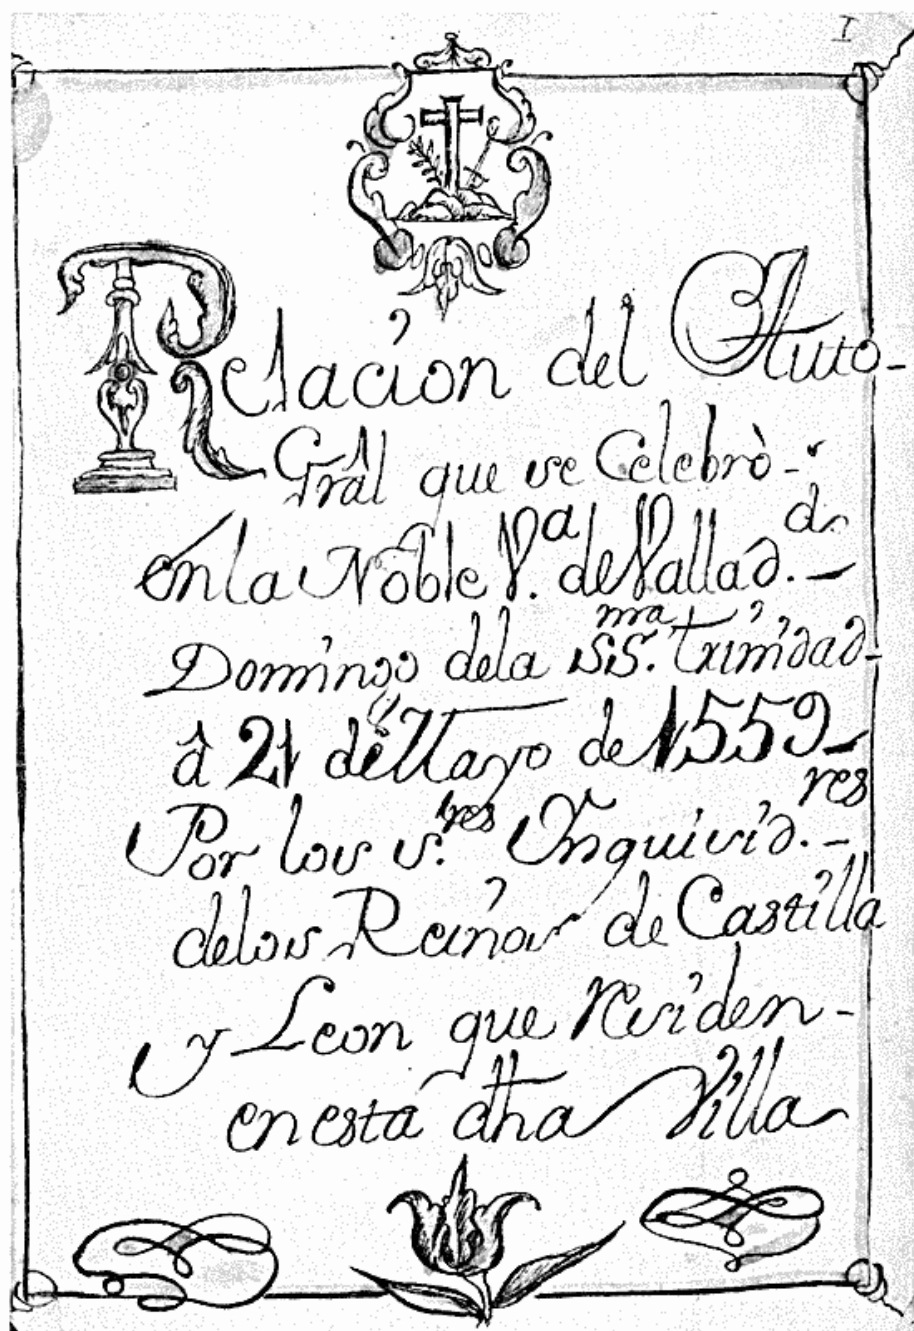 I
Relacion del Auto-
Grâl que se Celebrò-
en la Noble V.ª de Vallad.d-
Domingo dela SS.mra Trinidad-
â 21 de Mayo de 1559-
Por los s.res Inquisid.res-
delos Reinos de Castilla
y Leon que residen-
en esta dha Villa